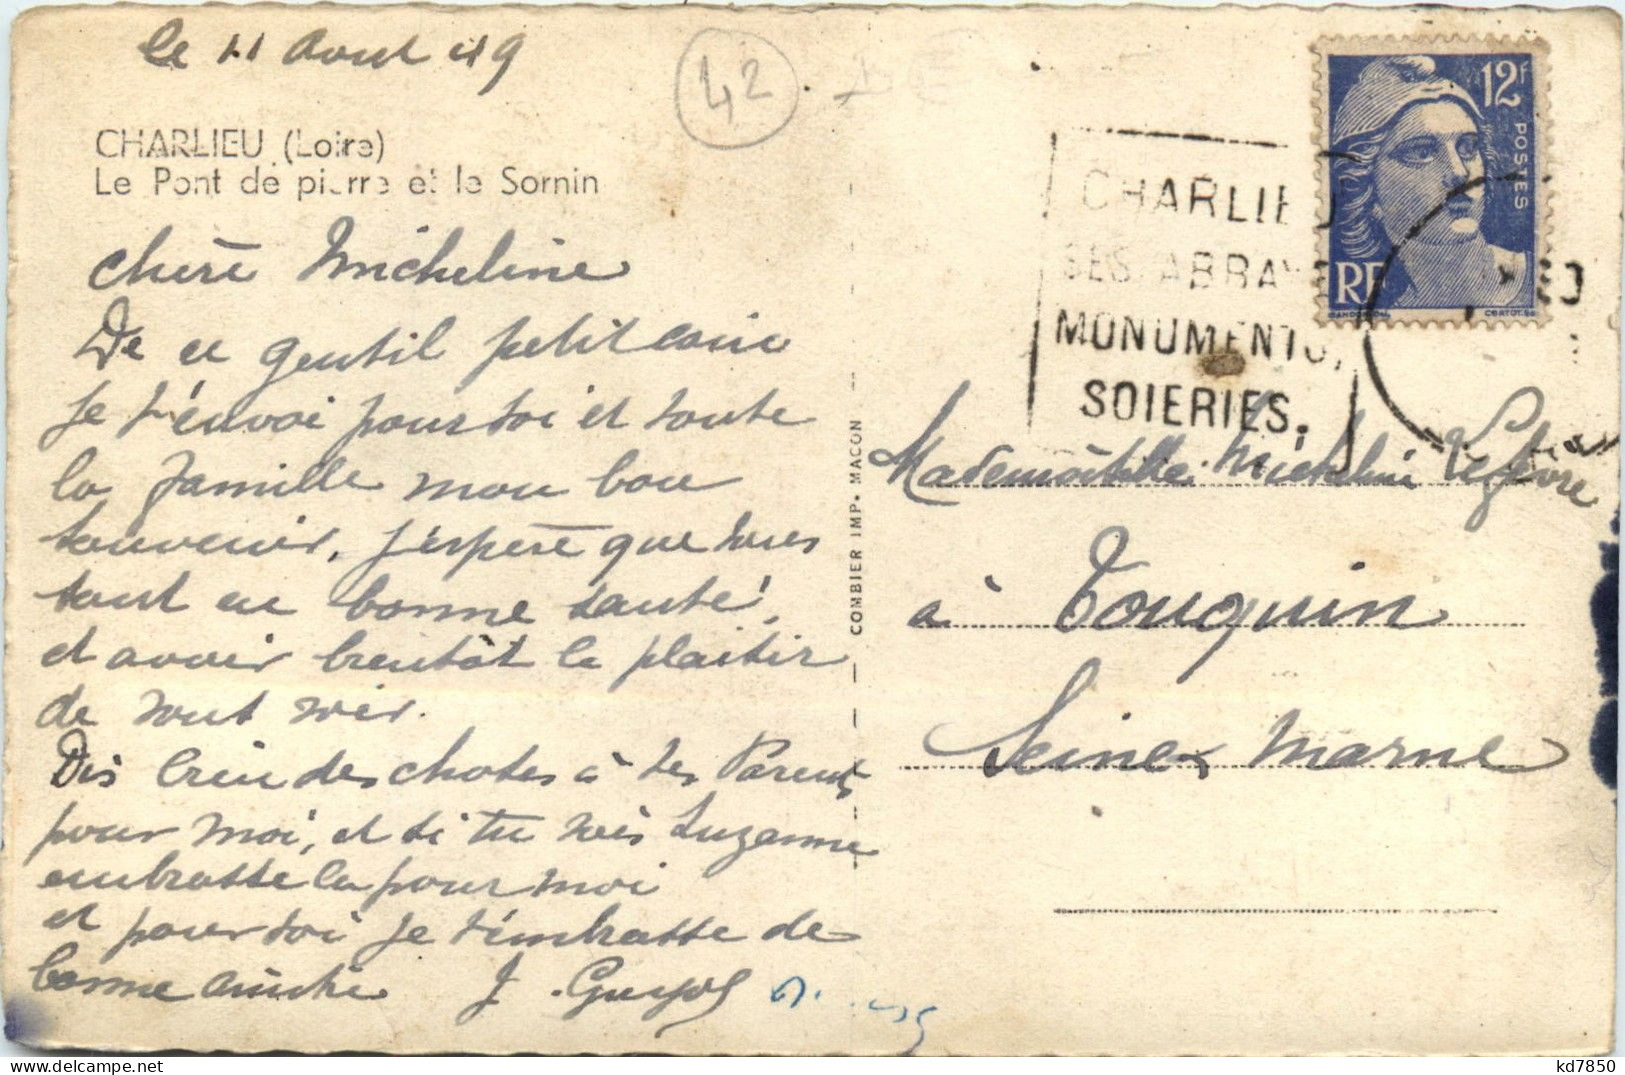 le 11 Aout 49
42
CHARLIEU (Loire)
Le Pont de pierre et le Sornin
chère Micheline
De ce gentil petit coin
je t'envoi pour toi et toute
la famille mon bon
souvenir, j'espère que vous
tout en bonne santé,
et avoir bientôt le plaisir
de vous voir.
Dis bien des choses à tes Parents
pour moi, et si tu vois Suzanne
embrasse la pour moi
et pour toi je t'embrasse de
bonne amitié J. Guyot
COMBIER IMP. MACON
12F
POSTES
RF
GANDON
CHARLIEU
SES ABBAYE
MONUMENTS,
SOIERIES.
Mademoiselle Micheline Lefèvre
à Touquin
Seine & Marne
kd7850